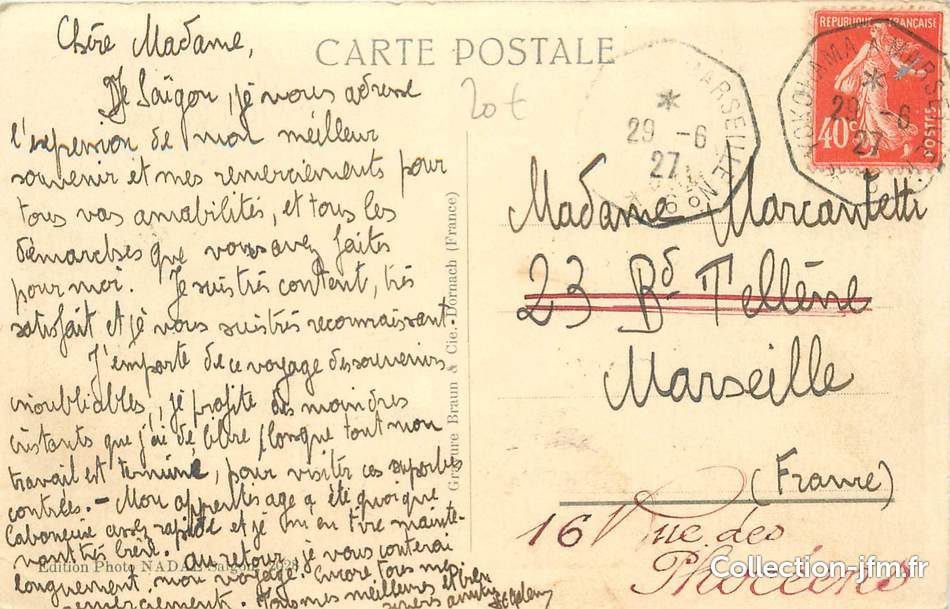 CARTE POSTALE
Chère Madame,
De Saïgon, je vous adresse
l'expression de mon meilleur
souvenir et mes remerciements pour
tous vos amabilités, et tous les
démarches que vous avez faites
pour moi. Je suis très content, très
satisfait et je vous suis très reconnaissant.
J'emporte de ce voyage des souvenirs
inoubliables, je profite des moindres
instants que j'ai de libre, lorsque tout mon
travail est terminé, pour visiter ces superbes
contrées. - Mon apprentissage a été quoique
laborieux assez rapide et je m'en tire mainte-
nant très bien. Au retour, je vous conterai
longuement mon voyage. Encore tous mes
remerciements. Tous mes meilleurs et
20 €
Edition Photo NADAL Saigon
Gravure Braun & Cie.-Dornach (France)
MARSEILLE No
29 -6
27
REPUBLIQUE FRANÇAISE
40c
POSTES
YOKOHAMA A MARSEILLE
29 -6
27
Madame Marcantetti
23 Bd Tellène
Marseille
(France)
16 Rue des
Phocéens
Collection-jfm.fr